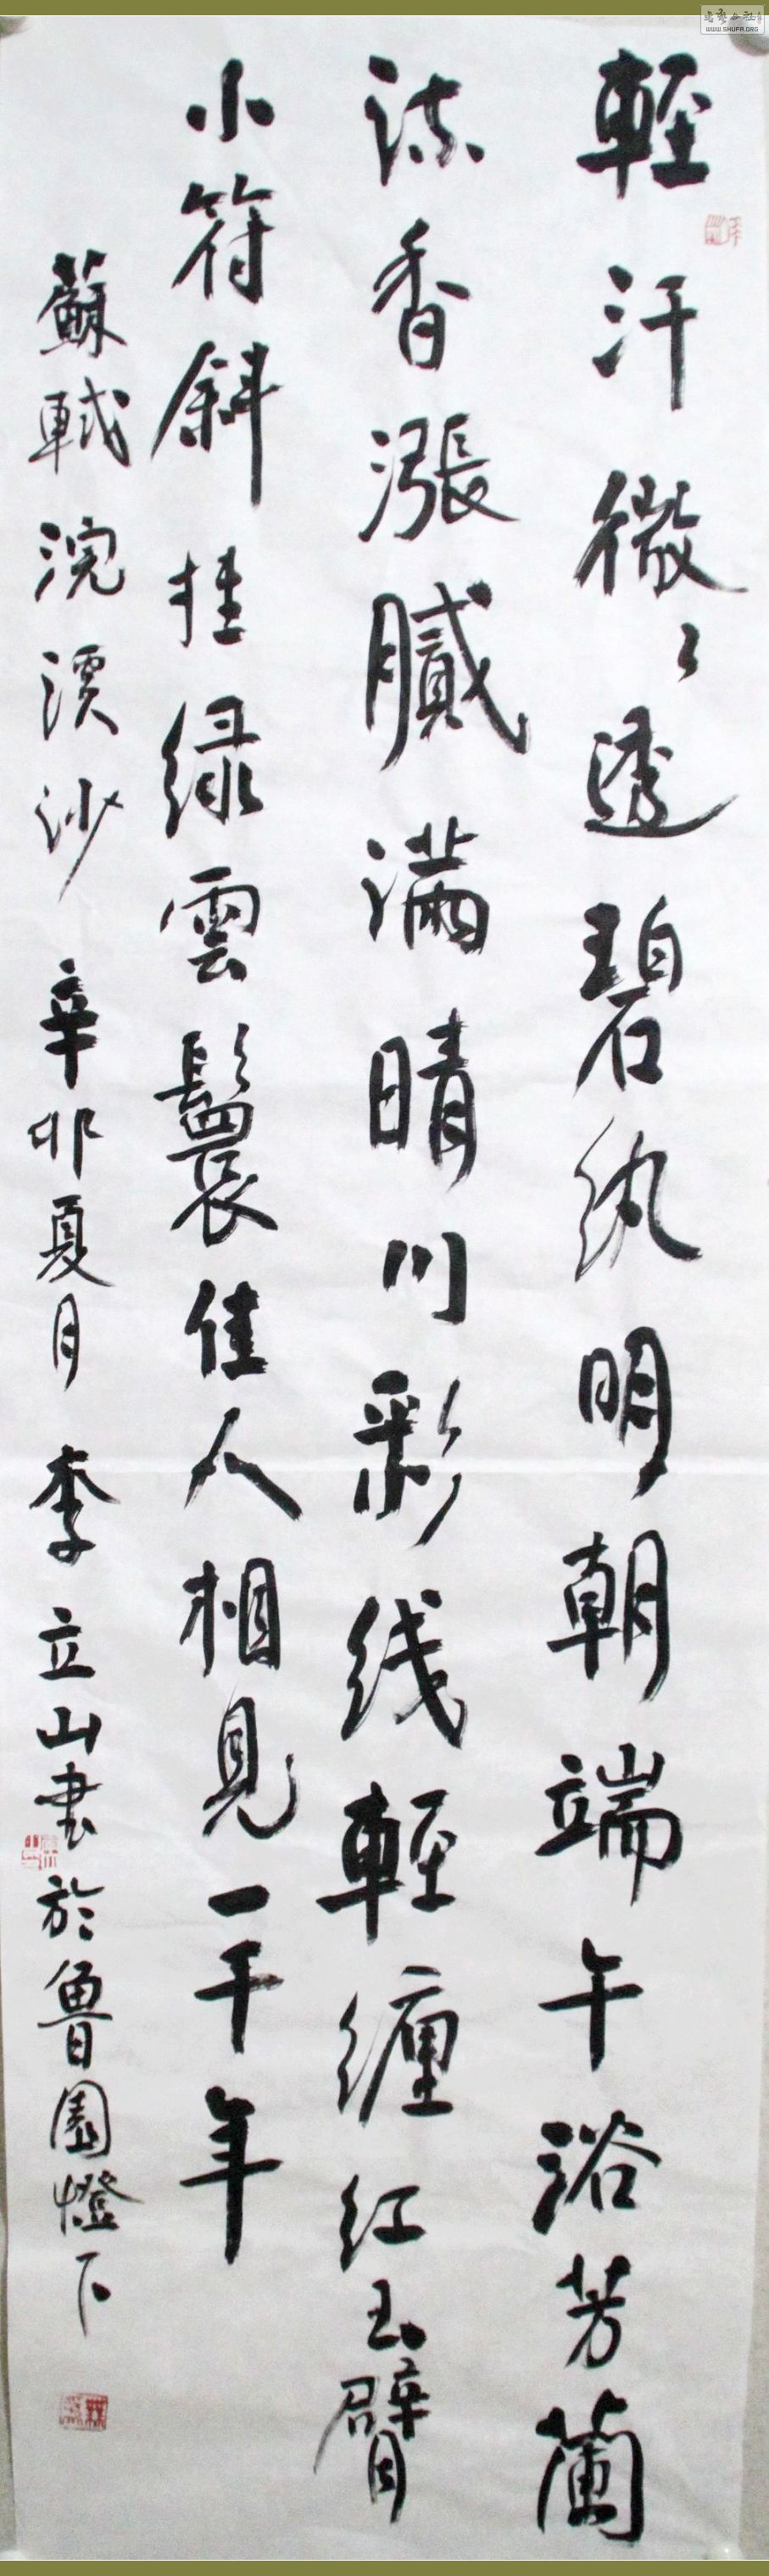 輕汗微々透碧纨明朝端午浴芳蘭
流香漲膩满晴川彩线輕缠红玉臂
小符斜挂绿雲鬟佳人相見一千年
蘇軾浣溪沙 辛卯夏月 李立山書於魯園燈下
WWW.SHUFA.ORG